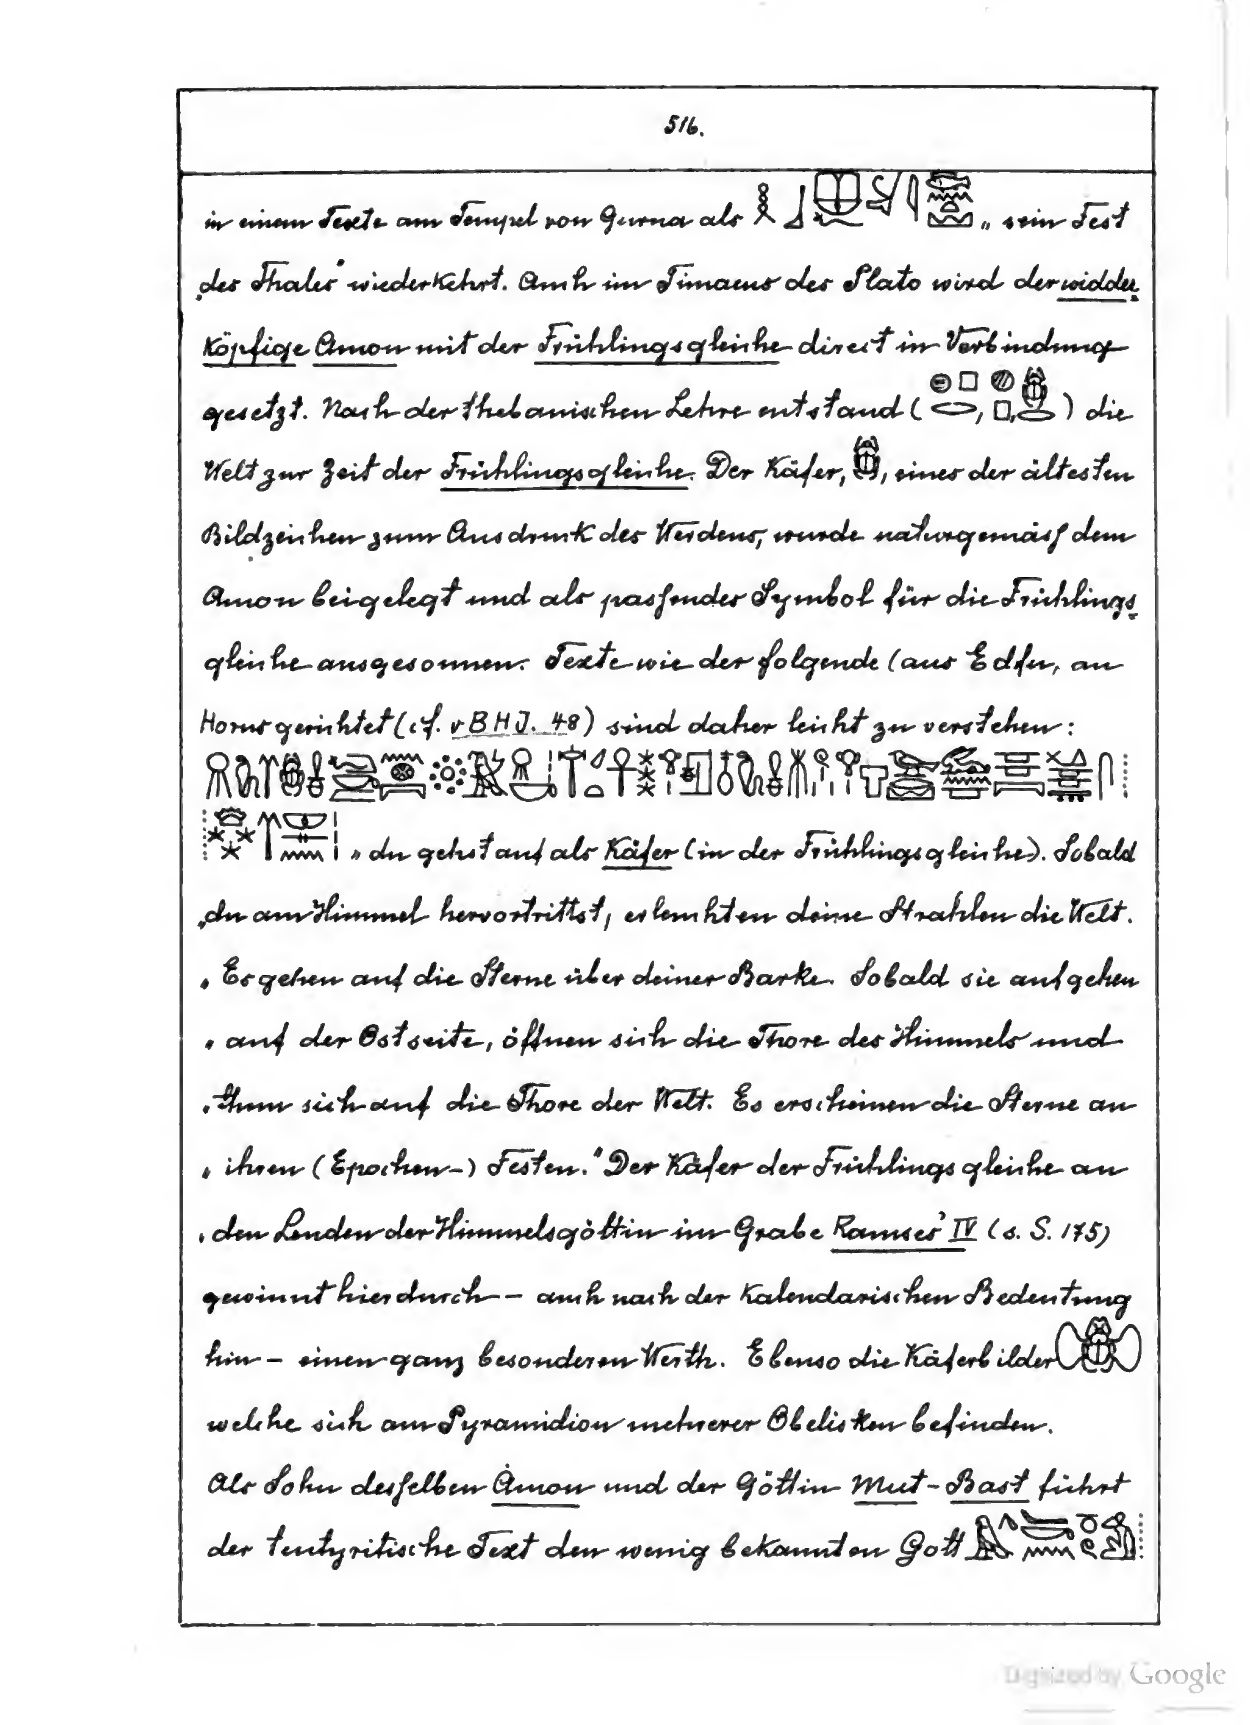 516.
in einem Texte am Tempel von Gurna als „ sein Fest
„des Thales“ wiederkehrt. Auch im Timaeus des Plato wird der widder„
köpfige Amon mit der Frühlingsgleiche direct in Verbindung
gesetzt. Nach der thebanischen Lehre entstand ( , , ) die
Welt zur Zeit der Frühlingsgleiche. Der Käfer, , eines der ältesten
Bildzeichen zum Ausdruck des Werdens, wurde naturgemäss dem
Amon beigelegt und als passendes Symbol für die Frühlings„
gleiche ausgesonnen. Texte wie der folgende (aus Edfu, an
Horus gerichtet (cf. v BHJ. 48) sind daher leicht zu verstehen:
„ du gehst auf als Käfer (in der Frühlingsgleiche). Sobald
„du am Himmel hervortrittst, erleuchten deine Strahlen die Welt.
„ Es gehen auf die Sterne über deiner Barke. Sobald sie aufgehen
„ auf der Ostseite, öffnen sich die Thore des Himmels und
„thun sich auf die Thore der Welt. Es erscheinen die Sterne an
„ ihren (Epochen-) Festen.“ Der Käfer der Frühlingsgleiche an
„den Lenden der Himmelsgöttin im Grabe Ramses' IV (s. S. 175)
gewinnt hierdurch - auch nach der kalendarischen Bedeutung
hin - einen ganz besonderen Werth. Ebenso die Käferbilder
welche sich am Pyramidion mehrerer Obelisken befinden.
Als Sohn desselben Amon und der Göttin Mut-Bast führt
der tentyritische Text den wenig bekannten Gott
Digitized by Google